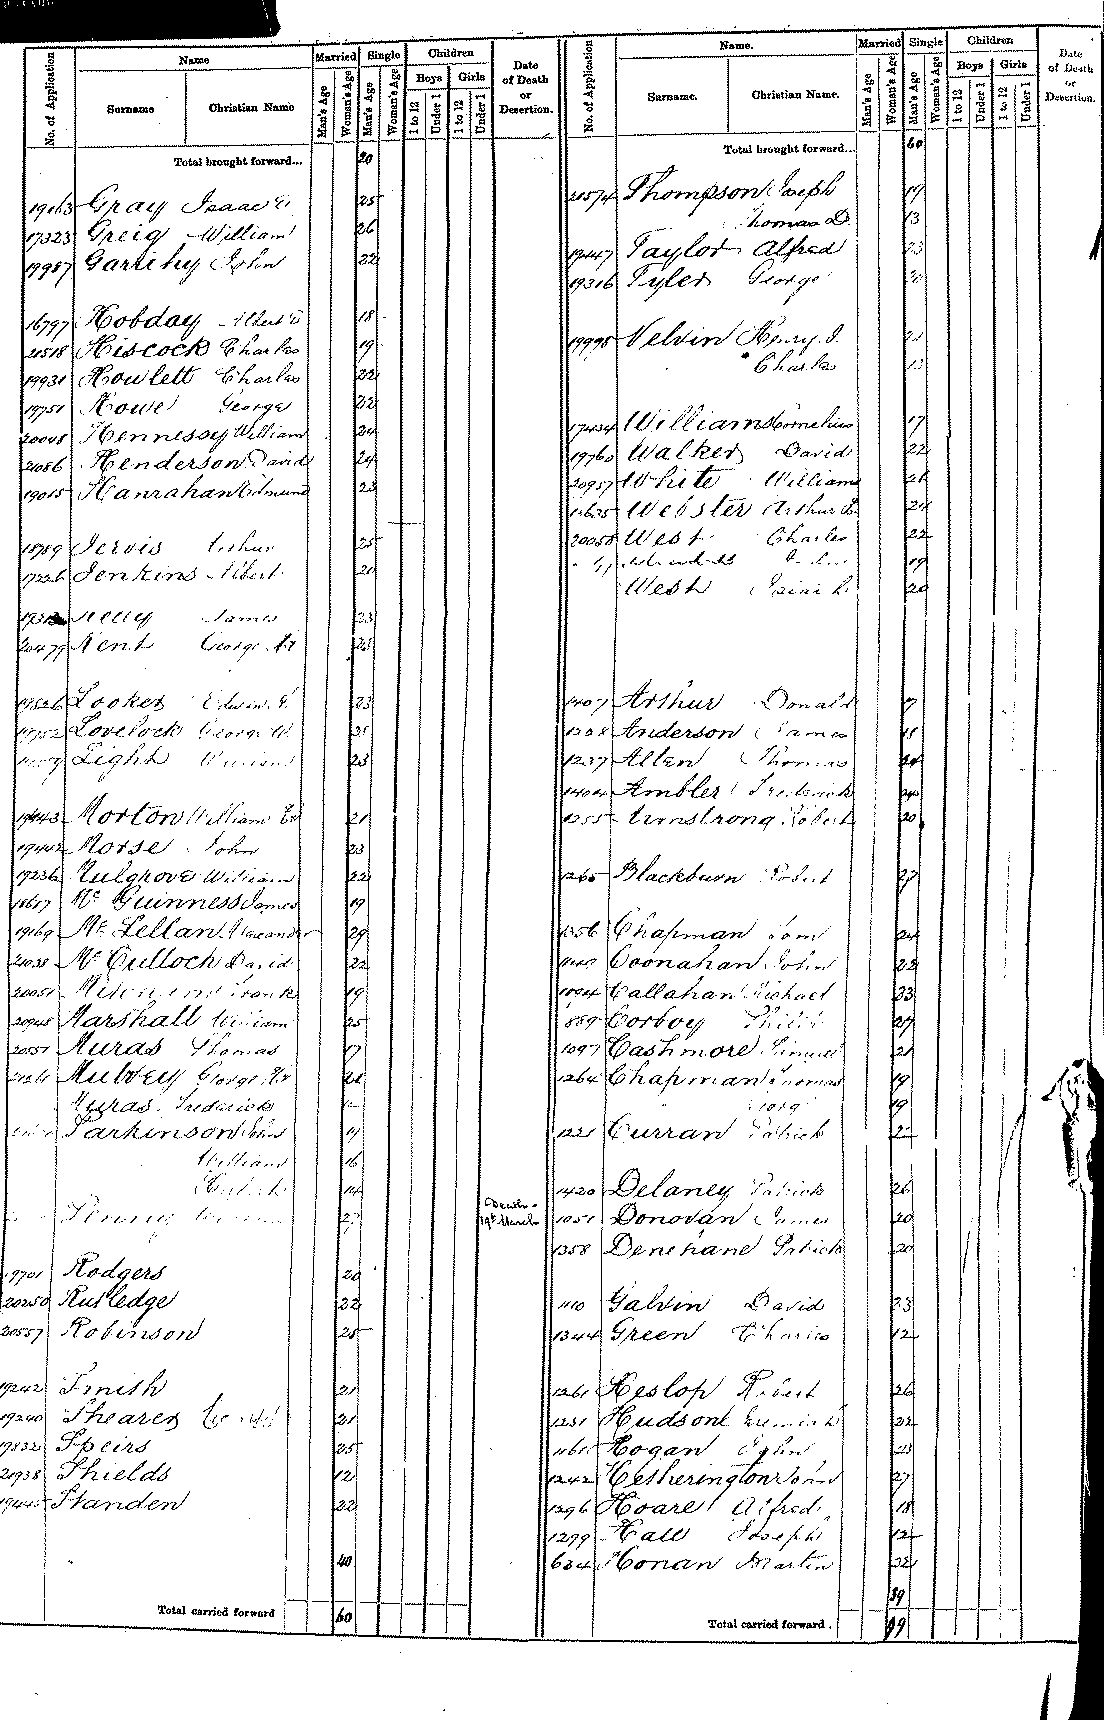 No. of Application Name Surname Christian Name Married Man's Age Woman's Age Single Man's Age Woman's Age Children Boys 1 to 12 Under 1 Girls 1 to 12 Under 1 Date of Death or Desertion.
Total brought forward... 20
19163 Gray Isaac 25
17323 Greig William 26
19987 Garrihy John 22
16797 Hobday Albert E 18
21518 Hiscock Charles 19
19931 Howlett Charles 22
19751 Howe George 22
20048 Hennessy William 24
21086 Henderson David 24
19015 Hanrahan Edmund 23
18789 Jervis Arthur 25
17226 Jenkins Albert 20
Kelly James 23
20479 Kent George
19526 Looker Edwin 23
19752 Lovelock George W. 21
Light 23
19443 Morton William 21
19442 Morse John 23
17236 Mulgrove William 22
18617 Mc Guinness James 19
19169 Mc Lellan Alexander 29
21038 Mc Culloch David 22
20051 Frank 19
20948 Marshall William 25
20551 Muras Thomas 17
Mulvey George
Muras Frederick
Parkinson John 19
William 16
14
Penny 27 Death 19th March
19701 Rodgers 20
20250 Rutledge 22
20557 Robinson 25
19242 Smith 21
19240 Shearer 21
19832 Speirs 25
21938 Shields 12
19445 Standen 22
40
Total carried forward 60
No. of Application Name. Surname. Christian Name. Married Man's Age Woman's Age Single Man's Age Woman's Age Children Boys 1 to 12 Under 1 Girls 1 to 12 Under 1 Date of Death or Desertion.
Total brought forward... 60
21574 Thompson Joseph 19
Thomas D. 13
19447 Taylor Alfred 23
19316 Tyler George
19998 Velvin Henry J. 21
" Charles 13
17434 Williams Cornelius 17
19760 Walker David 22
20957 White William 21
Webster Arthur 24
20058 West Charles 22
19
West 20
1407 Arthur Donald
1208 Anderson James
1237 Allen Thomas
1404 Ambler Frederick 24
1255 Armstrong Robert 20
1265 Blackburn Robert 27
1356 Chapman Tom 24
Coonahan John 22
1094 Callahan Michael 33
889 Corboy Philip 27
1097 Cashmore Samuel 21
1264 Chapman Thomas 19
19
1221 Curran Patrick
1420 Delaney Patrick 26
1051 Donovan James 20
1358 Denehane Patrick 20
1110 Galvin David 23
1344 Green Charles 12
1261 Heslop Robert 26
1231 Hudson Jeremiah 22
1161 Hogan John
1242 Hetherington John 27
1296 Hoare Alfred 18
1299 Hall Joseph 12
634 Honan Martin 32
39
Total carried forward. 99